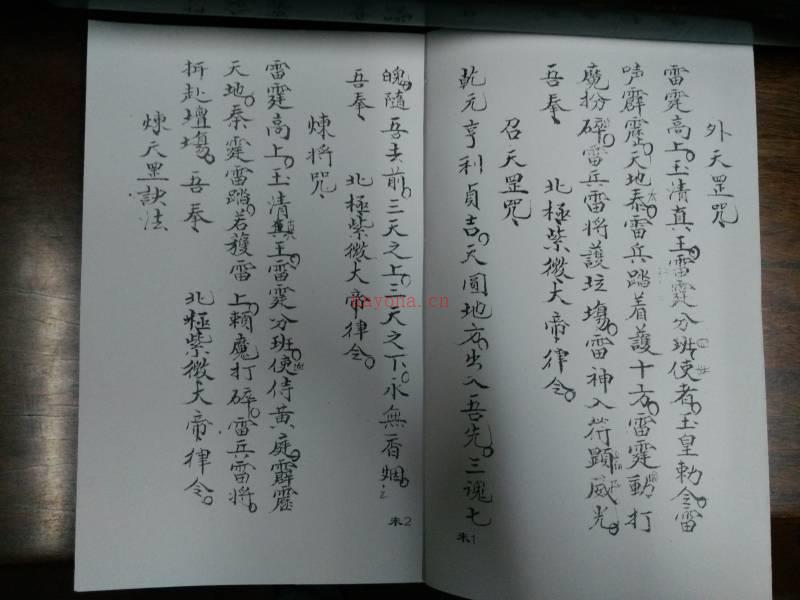 外天罡咒
雷霆高上。玉清真王。雷霆分班。使者。玉皇勅令。雷
啨霹靂。天地泰。雷兵踏着護十方。雷霆動打
魔扮碎。雷兵雷將護坛場。雷神入符顕威光。
吾奉、 北極紫微大帝律令。
召天罡咒、
乾元亨利貞吉。天圓地方。出入吾先。三魂七
朱1
魄隨吾去前。三天之上。三天之下。永無香烟。
吾奉、 北極紫微大帝律令。
煉将咒、
雷霆高上。玉清真王。雷霆分班。使侍黄庭。霹靂
天地。泰霆雷踏若䕶雷上。賴魔打碎。雷兵雷将。
拚赴壇場。吾奉、 北極紫微大帝律令。
煉天罡訣法
朱2
nayona.cn